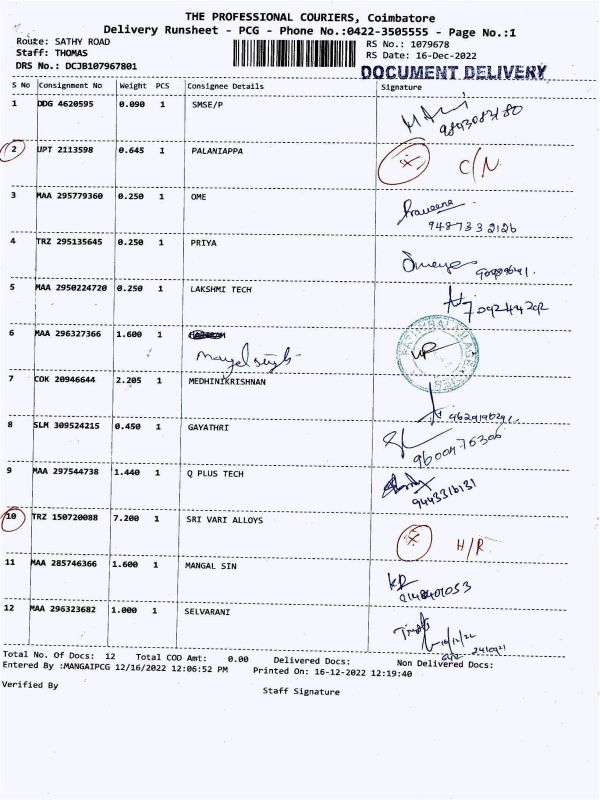 THE PROFESSIONAL COURIERS, Coimbatore
Delivery Runsheet - PCG - Phone No.:0422-3505555 - Page No.:1
Route: SATHY ROAD
RS No.: 1079678
Staff: THOMAS
RS Date: 16-Dec-2022
DRS No.: DCJB107967801
DOCUMENT DELIVERY
S No Consignment No Weight PCS Consignee Details Signature
1 DDG 4620595 0.090 1 SMSE/P
2 UPT 2113598 0.645 1 PALANIAPPA C/N
3 MAA 295779360 0.250 1 OME Praveena
9487332126
4 TRZ 295135645 0.250 1 PRIYA
5 MAA 2950224720 0.250 1 LAKSHMI TECH
6 MAA 296327366 1.600 1
7 COK 20946644 2.205 1 MEDHINIKRISHNAN
8 SLM 309524215 0.450 1 GAYATHRI
9 MAA 297544738 1.440 1 Q PLUS TECH
9443316131
10 TRZ 150720088 7.200 1 SRI VARI ALLOYS H/R
11 MAA 285746366 1.600 1 MANGAL SIN KR
12 MAA 296323682 1.000 1 SELVARANI
Total No. Of Docs: 12 Total COD Amt: 0.00 Delivered Docs: Non Delivered Docs:
Entered By :MANGAIPCG 12/16/2022 12:06:52 PM Printed On: 16-12-2022 12:19:40
Verified By Staff Signature